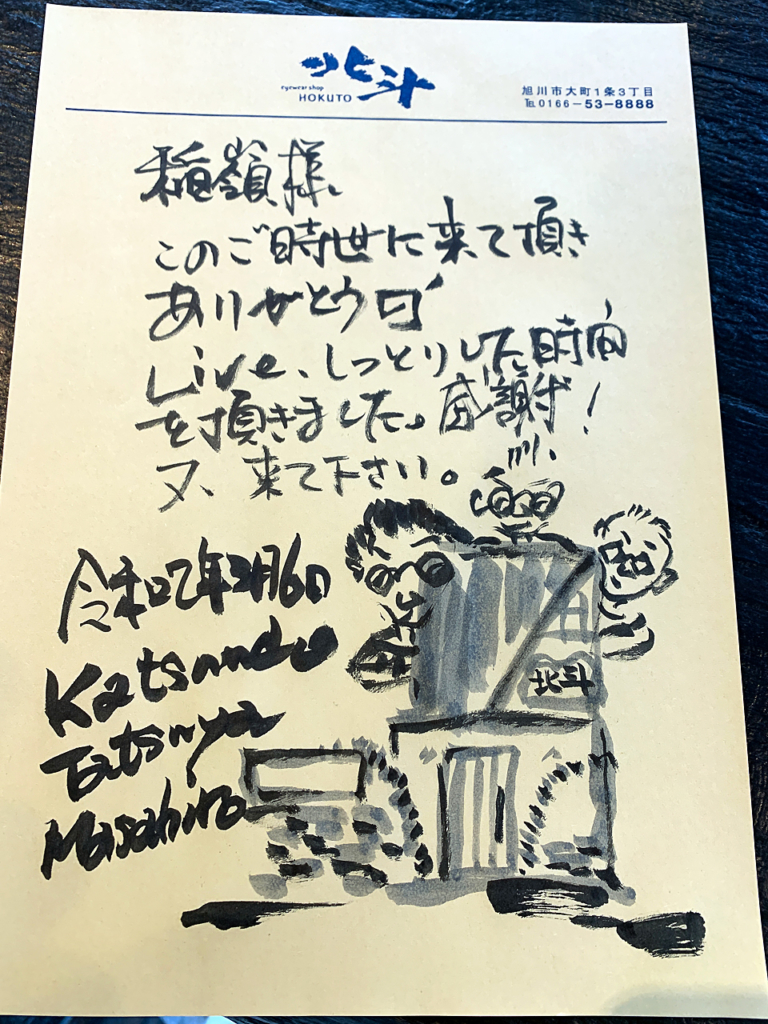 北斗
eyewear shop
HOKUTO
旭川市大町1条3丁目
℡0166-53-8888
稲嶺様、
このご時世に来て頂き
ありがとう
Live、しっとりした時間
を頂きました。感謝!
又、来て下さい。
令和2年3月6日
Katsunobu
Tatsuya
Masahiro
北斗